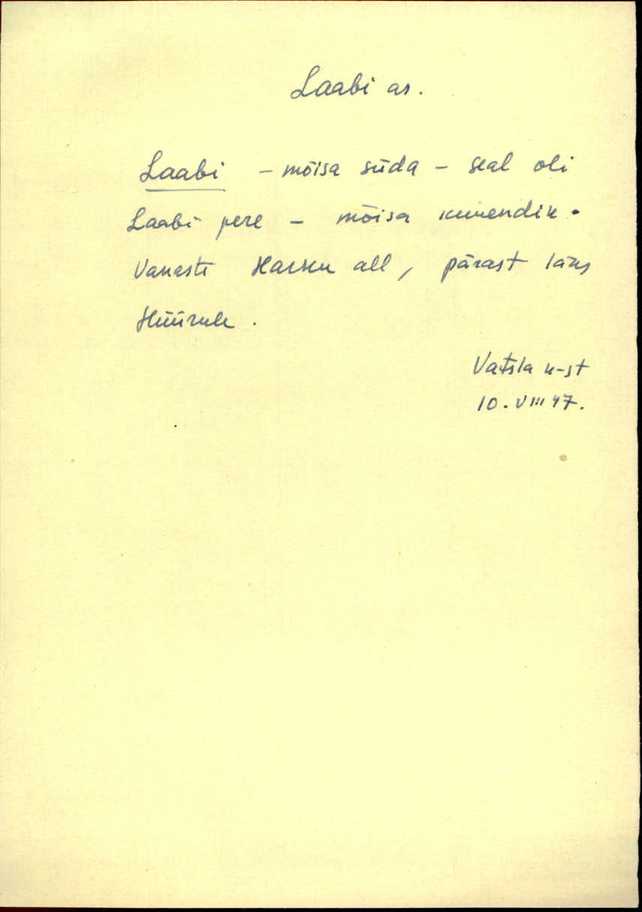 Laabi as.
Laabi – mõisa süda – seal oli
Laabi pere – mõisa kümendik.
Vanasti Harku all, pärast läks
Hüürule.
Vatsla k-st
10. VIII 47.